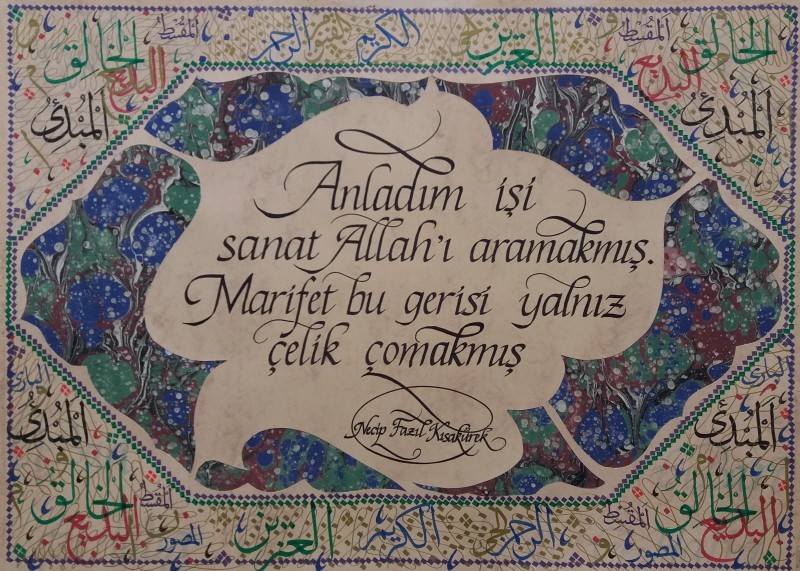 المقسط الرحمن الكريم العزيز المقسط
الخالق الخالق
البديع البديع
المبدئ المبدئ
Anladım işi
sanat Allah'ı aramakmış.
Marifet bu gerisi yalnız
çelik çomakmış
Necip Fazıl Kısakürek
البارئ البارئ
المبدئ المبدئ
الخالق المقسط المقسط الخالق
البديع المصور العزيز الكريم المصور البديع